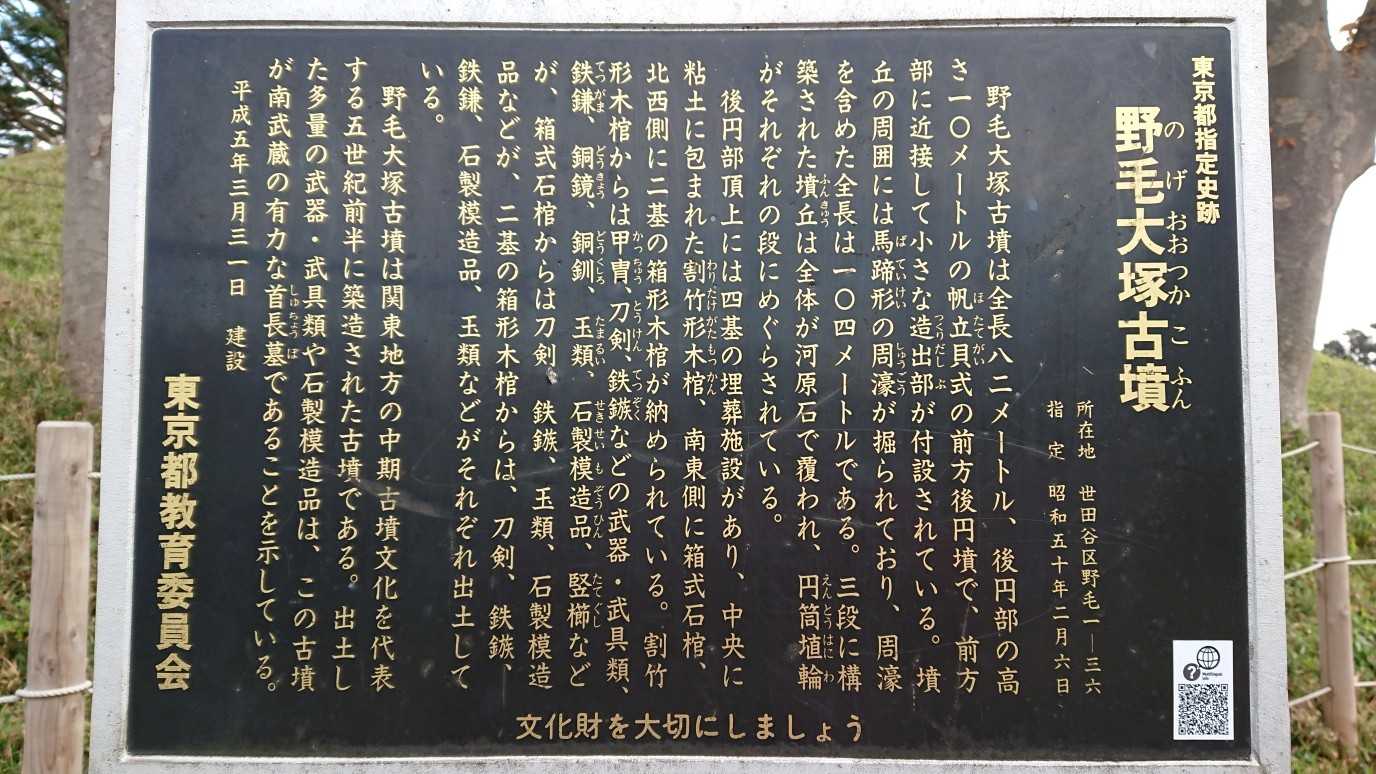 東京都指定史跡
野毛大塚古墳
のげおおつかこふん
所在地 世田谷区野毛一―三六
指定 昭和五十年二月六日
野毛大塚古墳は全長八二メートル、後円部の高
さ一〇メートルの帆立貝式の前方後円墳で、前方
ほたてがい
部に近接して小さな造出部が付設されている。墳
つくりだしぶ
丘の周囲には馬蹄形の周濠が掘られており、周濠
ばていけい しゅうごう
を含めた全長は一〇四メートルである。三段に構
築された墳丘は全体が河原石で覆われ、円筒埴輪
ふんきゅう えんとうはにわ
がそれぞれの段にめぐらされている。
後円部頂上には四基の埋葬施設があり、中央に
粘土に包まれた割竹形木棺、南東側に箱式石棺、
わりたけがたもっかん
北西側に二基の箱形木棺が納められている。割竹
形木棺からは甲冑、刀剣、鉄鏃などの武器・武具類、
かっちゅう とうけん てつぞく
鉄鎌、銅鏡、銅釧、玉類、石製模造品、竪櫛など
てつがま どうきょう どうくしろ たまるい せきせいもぞうひん たてぐし
が、箱式石棺からは刀剣、鉄鏃、玉類、石製模造
品などが、二基の箱形木棺からは、刀剣、鉄鏃、
鉄鎌、石製模造品、玉類などがそれぞれ出土して
いる。
野毛大塚古墳は関東地方の中期古墳文化を代表
する五世紀前半に築造された古墳である。出土し
た多量の武器・武具類や石製模造品は、この古墳
が南武蔵の有力な首長墓であることを示している。
しゅちょうぼ
平成五年三月三一日 建設
東京都教育委員会
文化財を大切にしましょう
Multilingual
info